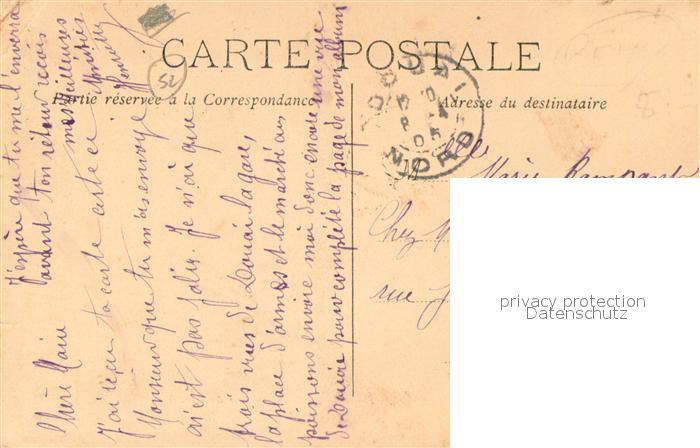 CARTE POSTALE
Partie réservée à la Correspondance
Adresse du destinataire
52
DOUAI
NORD
Chéri Marie
J'ai reçu ta carte et ce
Monsieur que tu m'as envoyé
n'est pas joli. Je n'ai que
trois vues de Douai la gare,
la place d'armes et le marché au
poissons envoie moi donc encore une vue
de Douai pour complété la page de mon album
J'espère que tu me l'enverra
avant ton retour reçois
mes meilleures
amitiés
Mlle
Marie
Chez M
rue J
privacy protection
Datenschutz